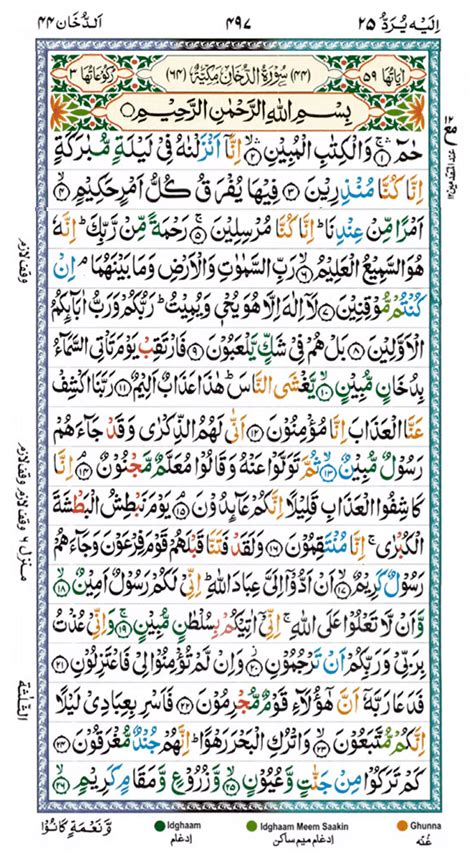 اِلَيْهِ يُرَدُّ ٢٥ ٤٩٧ اَلدُّخَان ٤٤
اٰيَاتُهَا ٥٩ (٤٤) سُوْرَةُ الدُّخَانِ مَكِّيَّةٌ (٦٤) رُكُوْعَاتُهَا ٣
بِسْمِ اللّٰهِ الرَّحْمٰنِ الرَّحِيْمِ ۝
حٰمٓ ۝١ وَالْكِتٰبِ الْمُبِيْنِ ۝٢ اِنَّآ اَنْزَلْنٰهُ فِيْ لَيْلَةٍ مُّبٰرَكَةٍ
اِنَّا كُنَّا مُنْذِرِيْنَ ۝٣ فِيْهَا يُفْرَقُ كُلُّ اَمْرٍ حَكِيْمٍ ۝٤
اَمْرًا مِّنْ عِنْدِنَا ؕ اِنَّا كُنَّا مُرْسِلِيْنَ ۝٥ رَحْمَةً مِّنْ رَّبِّكَ ؕ اِنَّهٗ
هُوَ السَّمِيْعُ الْعَلِيْمُ ۝٦ رَبِّ السَّمٰوٰتِ وَالْاَرْضِ وَمَا بَيْنَهُمَا ۘ اِنْ
كُنْتُمْ مُّوْقِنِيْنَ ۝٧ لَآ اِلٰهَ اِلَّا هُوَ يُحْيٖ وَيُمِيْتُ ؕ رَبُّكُمْ وَرَبُّ اٰبَآئِكُمُ
الْاَوَّلِيْنَ ۝٨ بَلْ هُمْ فِيْ شَكٍّ يَّلْعَبُوْنَ ۝٩ فَارْتَقِبْ يَوْمَ تَاْتِى السَّمَآءُ
بِدُخَانٍ مُّبِيْنٍ ۝١٠ يَّغْشَى النَّاسَ ؕ هٰذَا عَذَابٌ اَلِيْمٌ ۝١١ رَبَّنَا اكْشِفْ
عَنَّا الْعَذَابَ اِنَّا مُؤْمِنُوْنَ ۝١٢ اَنّٰى لَهُمُ الذِّكْرٰى وَقَدْ جَآءَهُمْ
رَسُوْلٌ مُّبِيْنٌ ۝١٣ ثُمَّ تَوَلَّوْا عَنْهُ وَقَالُوْا مُعَلَّمٌ مَّجْنُوْنٌ ۝١٤ اِنَّا
كَاشِفُوا الْعَذَابِ قَلِيْلًا اِنَّكُمْ عَآئِدُوْنَ ۝١٥ يَوْمَ نَبْطِشُ الْبَطْشَةَ
الْكُبْرٰى ۚ اِنَّا مُنْتَقِمُوْنَ ۝١٦ وَلَقَدْ فَتَنَّا قَبْلَهُمْ قَوْمَ فِرْعَوْنَ وَجَآءَهُمْ
رَسُوْلٌ كَرِيْمٌ ۝١٧ اَنْ اَدُّوْٓا اِلَيَّ عِبَادَ اللّٰهِ ؕ اِنِّيْ لَكُمْ رَسُوْلٌ اَمِيْنٌ ۝١٨
وَّاَنْ لَّا تَعْلُوْا عَلَى اللّٰهِ ۚ اِنِّيْٓ اٰتِيْكُمْ بِسُلْطٰنٍ مُّبِيْنٍ ۝١٩ وَاِنِّيْ عُذْتُ
بِرَبِّيْ وَرَبِّكُمْ اَنْ تَرْجُمُوْنِ ۝٢٠ وَاِنْ لَّمْ تُؤْمِنُوْا لِيْ فَاعْتَزِلُوْنِ ۝٢١
فَدَعَا رَبَّهٗٓ اَنَّ هٰٓؤُلَآءِ قَوْمٌ مُّجْرِمُوْنَ ۝٢٢ فَاَسْرِ بِعِبَادِيْ لَيْلًا
اِنَّكُمْ مُّتَّبَعُوْنَ ۝٢٣ وَاتْرُكِ الْبَحْرَ رَهْوًا ؕ اِنَّهُمْ جُنْدٌ مُّغْرَقُوْنَ ۝٢٤
كَمْ تَرَكُوْا مِنْ جَنّٰتٍ وَّعُيُوْنٍ ۝٢٥ وَّزُرُوْعٍ وَّمَقَامٍ كَرِيْمٍ ۝٢٦
وقف لازم
وقف لازم وقف لازم
منزل ٦
الثلثة
Idghaam
ادغام
Idghaam Meem Saakin
ادغام ميم ساكن
Ghunna
غُنّه
وَّنَعْمَةٍ كَانُوْا